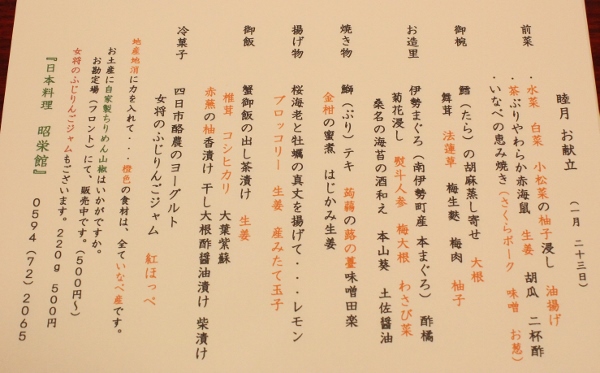 睦月 お献立 （一月 二十三日）
前菜 ・水菜 白菜 小松菜の柚子浸し 油揚げ
・茶ぶりやわらか赤海鼠 生姜 胡瓜 二杯酢
・いなべの恵み焼き（さくらポーク 味噌 お葱）
御椀 鱈（たら）の胡麻蒸し寄せ 大根
舞茸 法蓮草 梅生麩 梅肉 柚子
お造里 伊勢まぐろ（南伊勢町産 本まぐろ） 酢橘
菊花浸し 熨斗人参 梅大根 わさび菜
桑名の海苔の酒和え 本山葵 土佐醤油
焼き物 鰤（ぶり）テキ 蒟蒻の蕗の薹味噌田楽
金柑の蜜煮 はじかみ生姜
揚げ物 桜海老と牡蠣の真丈を揚げて・・・レモン
ブロッコリー 生姜 産みたて玉子
御飯 蟹御飯の出し茶漬け 生姜
椎茸 コシヒカリ 大葉紫蘇
赤蕪の柚香漬け 干し大根酢醤油漬け 柴漬け
冷菓子 四日市酪農のヨーグルト
女将のふじりんごジャム 紅ほっぺ
地産地消に力を入れて・・・橙色の食材は、全ていなべ産です。
お土産に自家製ちりめん山椒はいかがですか。
お勘定場（フロント）にて、販売中です。（500円〜）
女将のふじりんごジャムもございます。220g 500円
『日本料理 昭栄館』 0594（72）2065